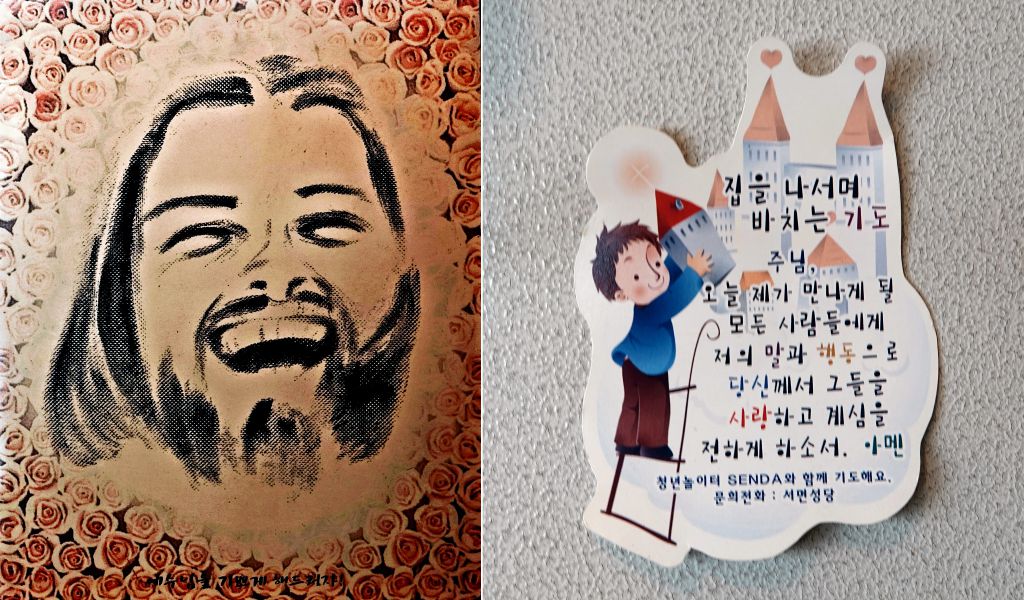 예수님을 기쁘게 해드리자!
집을 나서며
바치는 기도
주님,
오늘 제가 만나게 될
모든 사람들에게
저의 말과 행동으로
당신께서 그들을
사랑하고 계심을
전하게 하소서. 아멘
청년놀이터 SENDA와 함께 기도해요.
문희전화 : 서면성당